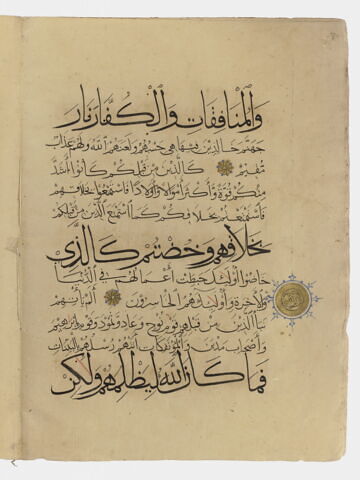 والمنافقات والكفار نار
جهنم خالدين فيها هي حسبهم ولعنهم الله ولهم عذاب
مقيم كالذين من قبلكم كانوا اشد
منكم قوة واكثر اموالا واولادا فاستمتعوا بخلاقهم
فاستمتعتم بخلاقكم كما استمتع الذين من قبلكم
بخلاقهم وخضتم كالذي
خاضوا اولئك حبطت اعمالهم في الدنيا
والاخرة واولئك هم الخاسرون الم ياتهم
نبا الذين من قبلهم قوم نوح وعاد وثمود وقوم ابرهيم
واصحاب مدين والمؤتفكات اتتهم رسلهم بالبينات
فما كان الله ليظلمهم ولكن